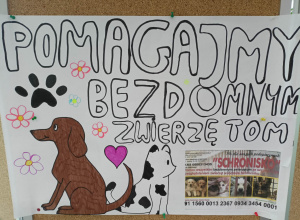 POMAGAJMY
BEZDOMNYM
ZWIERZETOM
"SCHRONISKO"
91 1560 0013 2367 0634 3454 0001